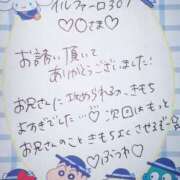 イルファーロ307
♡〇さま♡
お誘い頂いて
ありがとうございました!
お兄さんに攻められるの、きもち
よすぎでした…♡ 次回はもっと
お兄さんのこときもちよくさせるぞ